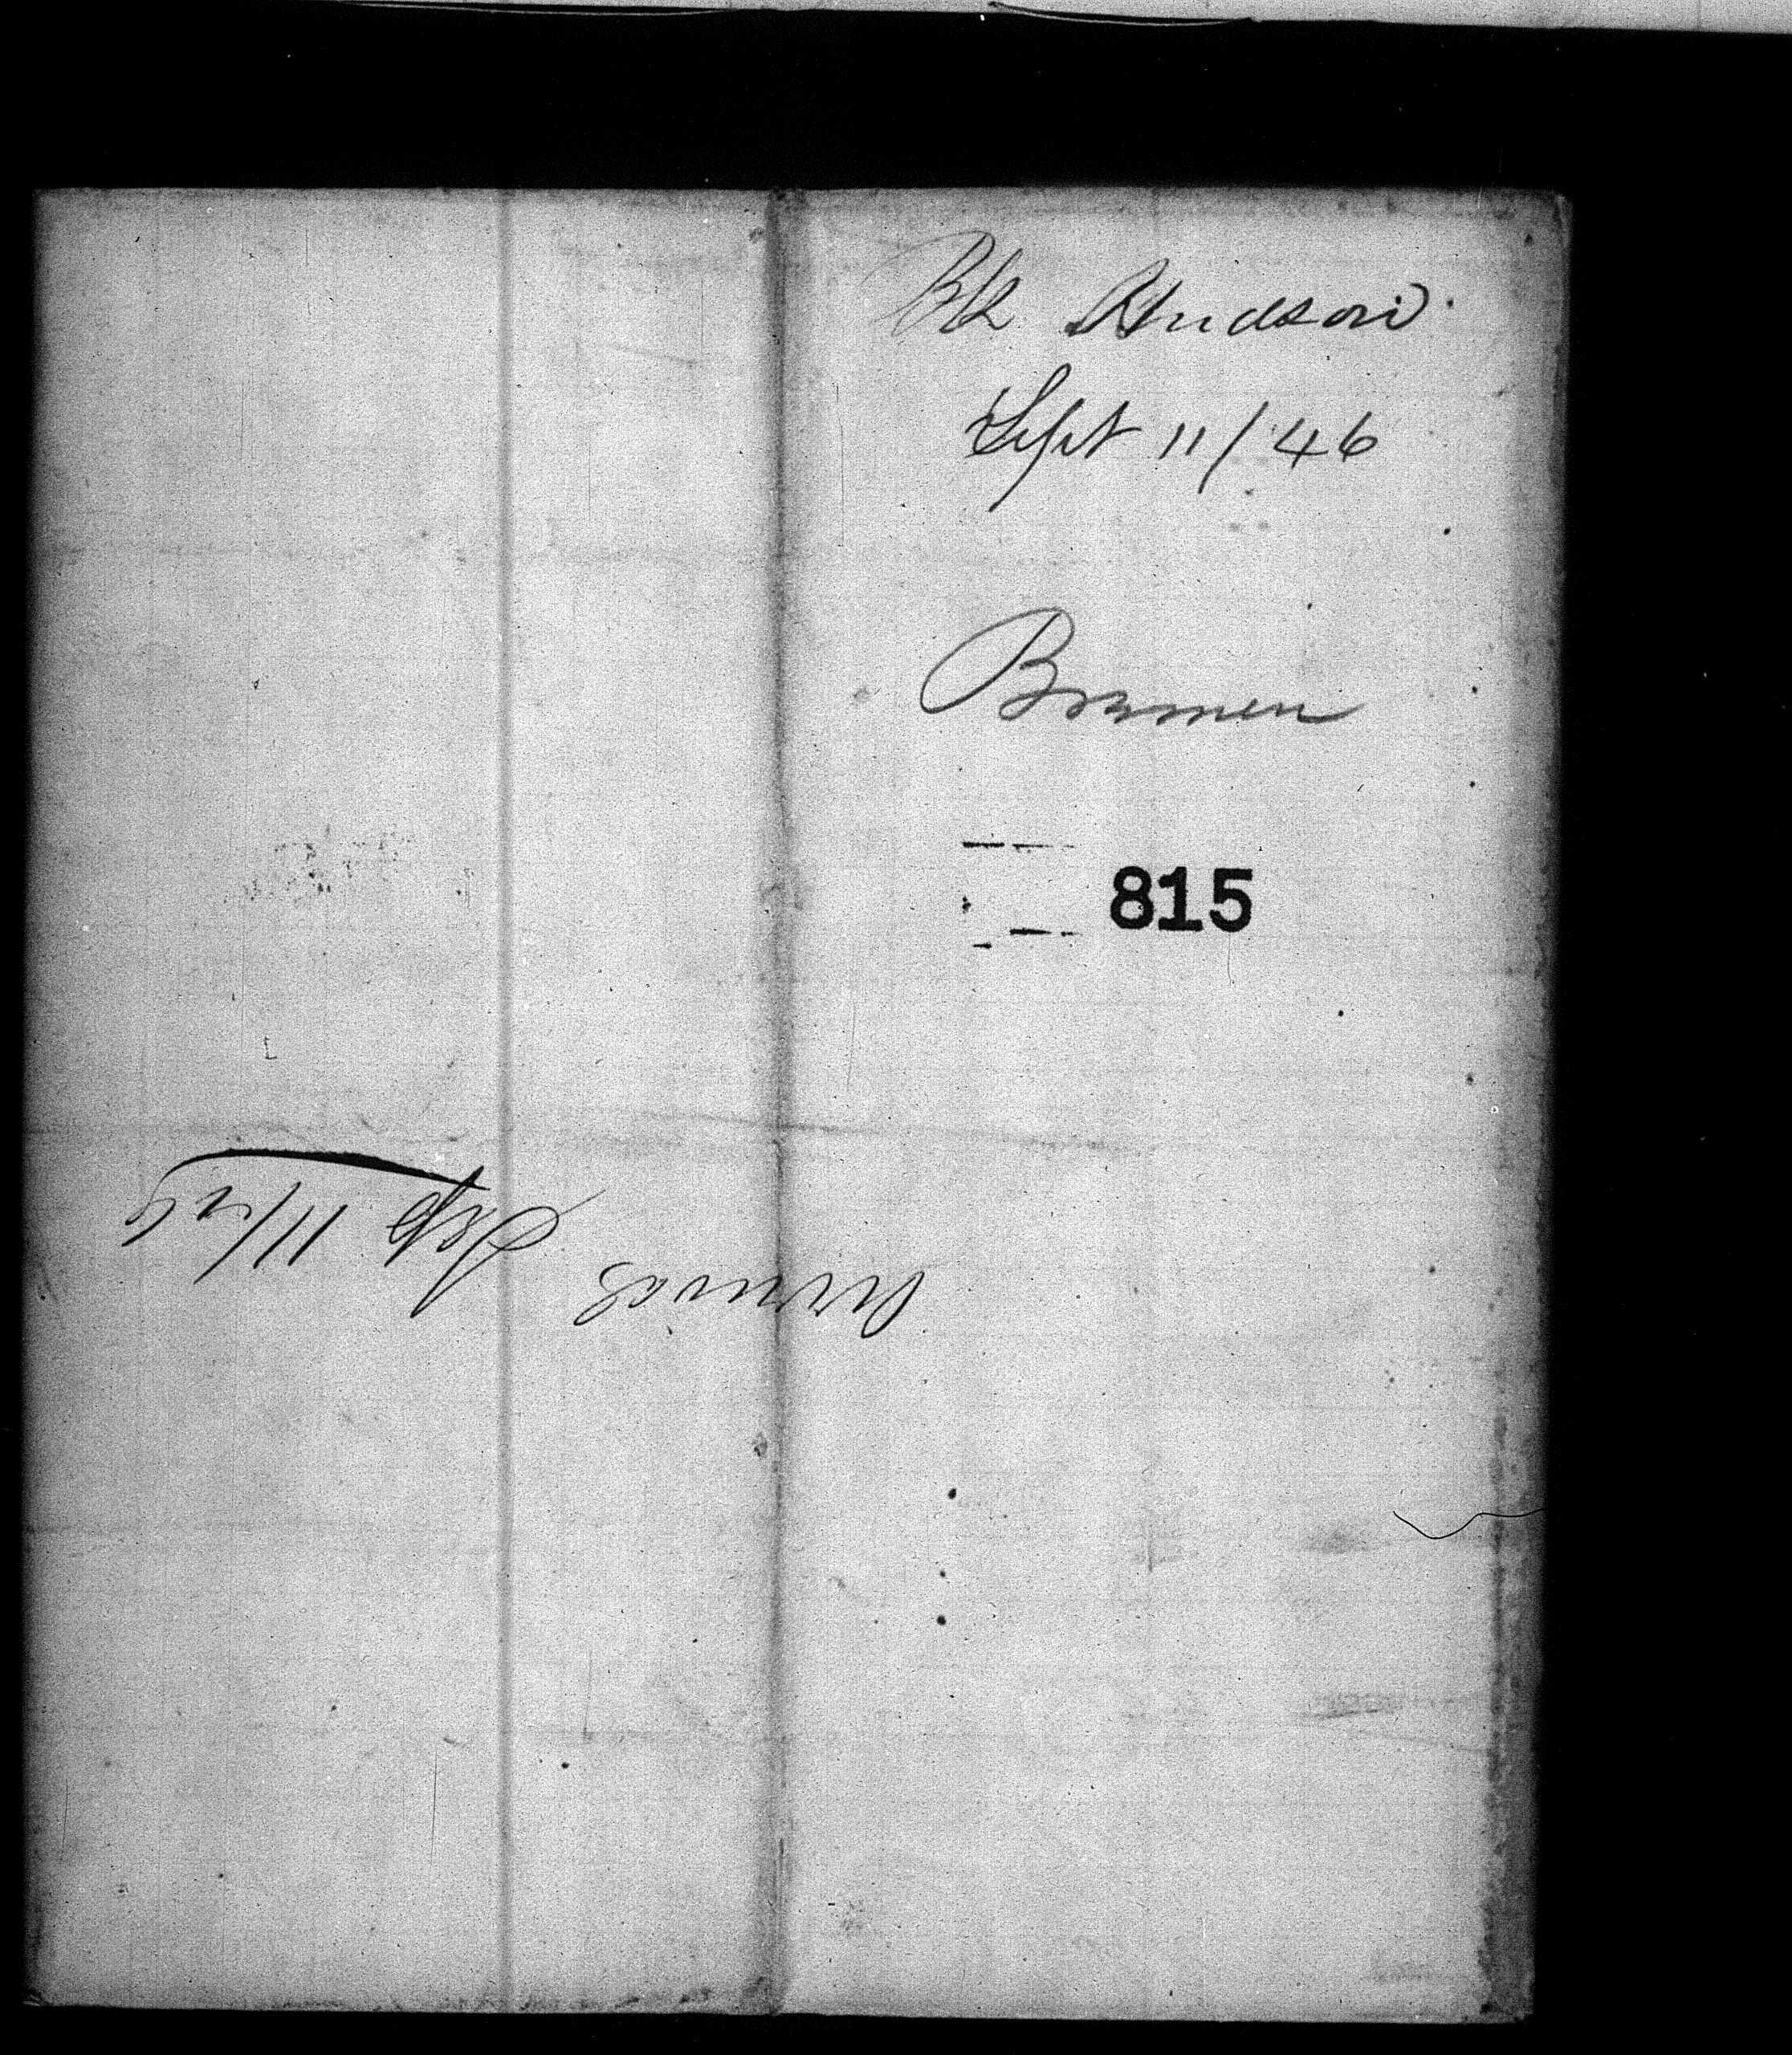 Bk Hudson
Sept 11/46
Bremen
815
arrived
Sep 11/46